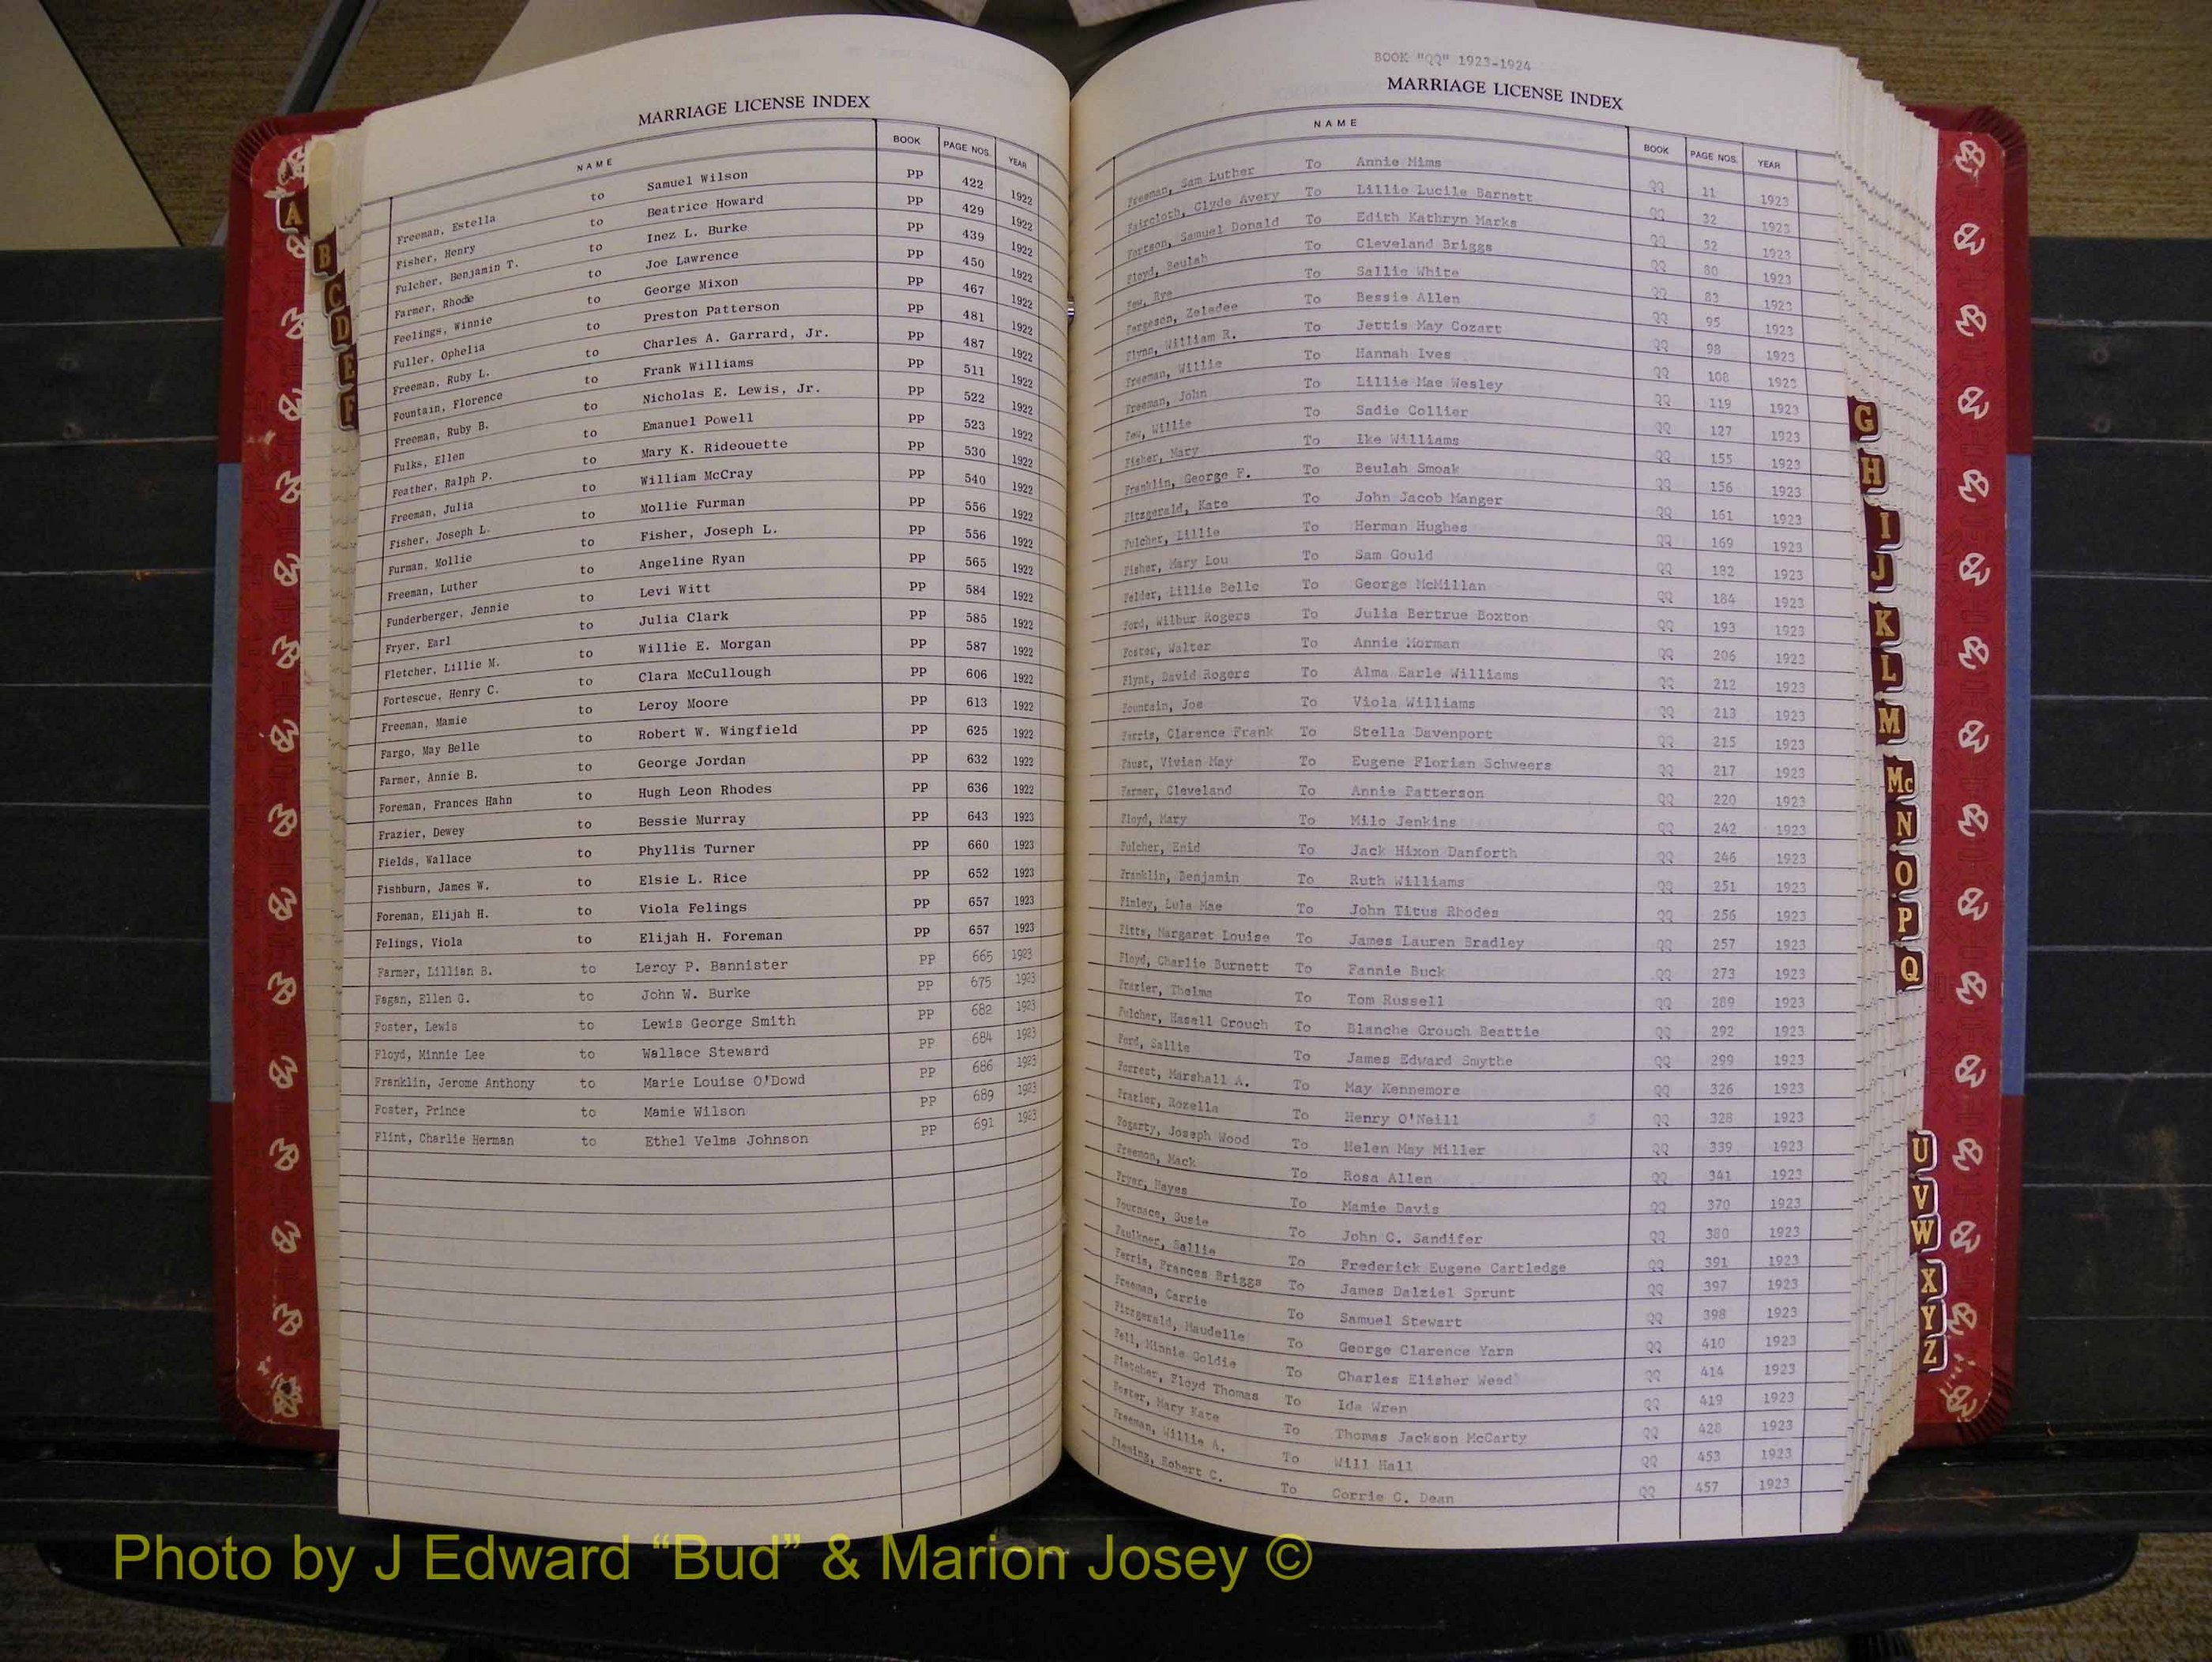 MARRIAGE LICENSE INDEX
NAME BOOK PAGE NOS. YEAR
Freeman, Estella to Samuel Wilson PP 422 1922
Fisher, Henry to Beatrice Howard PP 429 1922
Fulcher, Benjamin T. to Inez L. Burke PP 439 1922
Farmer, Rhode to Joe Lawrence PP 450 1922
Feelings, Winnie to George Mixon PP 467 1922
Fuller, Ophelia to Preston Patterson PP 481 1922
Freeman, Ruby L. to Charles A. Garrard, Jr. PP 487 1922
Fountain, Florence to Frank Williams PP 511 1922
Freeman, Ruby B. to Nicholas E. Lewis, Jr. PP 522 1922
Fulks, Ellen to Emanuel Powell PP 523 1922
Feather, Ralph P. to Mary K. Rideouette PP 530 1922
Freeman, Julia to William McCray PP 540 1922
Fisher, Joseph L. to Mollie Furman PP 556 1922
Furman, Mollie to Fisher, Joseph L. PP 556 1922
Freeman, Luther to Angeline Ryan PP 565 1922
Funderberger, Jennie to Levi Witt PP 584 1922
Fryer, Earl to Julia Clark PP 585 1922
Fletcher, Lillie M. to Willie E. Morgan PP 587 1922
Fortescue, Henry C. to Clara McCullough PP 606 1922
Freeman, Mamie to Leroy Moore PP 613 1922
Fargo, May Belle to Robert W. Wingfield PP 625 1922
Farmer, Annie B. to George Jordan PP 632 1922
Foreman, Frances Hahn to Hugh Leon Rhodes PP 636 1922
Frazier, Dewey to Bessie Murray PP 643 1923
Fields, Wallace to Phyllis Turner PP 660 1923
Fishburn, James W. to Elsie L. Rice PP 652 1923
Foreman, Elijah H. to Viola Felings PP 657 1923
Felings, Viola to Elijah H. Foreman PP 657 1923
Farmer, Lillian B. to Leroy P. Bannister PP 665 1923
Fagan, Ellen G. to John W. Burke PP 675 1923
Foster, Lewis to Lewis George Smith PP 682 1923
Floyd, Minnie Lee to Wallace Steward PP 684 1923
Franklin, Jerome Anthony to Marie Louise O'Dowd PP 686 1923
Foster, Prince to Mamie Wilson PP 689 1923
Flint, Charlie Herman to Ethel Velma Johnson PP 691 1923
A
B
C
D
E
F
BOOK "QQ" 1923-1924
MARRIAGE LICENSE INDEX
NAME BOOK PAGE NOS. YEAR
Freeman, Sam Luther To Annie Mims QQ 11 1923
Faircloth, Clyde Avery To Lillie Lucile Barnett QQ 32 1923
Fortson, Samuel Donald To Edith Kathryn Marks QQ 52 1923
Floyd, Beulah To Cleveland Briggs QQ 80 1923
Few, Rye To Sallie White QQ 83 1923
Fergeson, Zeladee To Bessie Allen QQ 95 1923
Flynn, William R. To Jettis May Cozart QQ 98 1923
Freeman, Willie To Hannah Ives QQ 108 1923
Freeman, John To Lillie Mae Wesley QQ 119 1923
Few, Willie To Sadie Collier QQ 127 1923
Fisher, Mary To Ike Williams QQ 155 1923
Franklin, George F. To Beulah Smoak QQ 156 1923
Fitzgerald, Kate To John Jacob Manger QQ 161 1923
Fulcher, Lillie To Herman Hughes QQ 169 1923
Fisher, Mary Lou To Sam Gould QQ 182 1923
Felder, Lillie Belle To George McMillan QQ 184 1923
Ford, Wilbur Rogers To Julia Bertrue Boxton QQ 193 1923
Foster, Walter To Annie Norman QQ 206 1923
Flynt, David Rogers To Alma Earle Williams QQ 212 1923
Fountain, Joe To Viola Williams QQ 213 1923
Ferris, Clarence Frank To Stella Davenport QQ 215 1923
Faust, Vivian May To Eugene Florian Schweers QQ 217 1923
Farmer, Cleveland To Annie Patterson QQ 220 1923
Floyd, Mary To Milo Jenkins QQ 242 1923
Fulcher, Enid To Jack Hixon Danforth QQ 246 1923
Franklin, Benjamin To Ruth Williams QQ 251 1923
Finley, Lula Mae To John Titus Rhodes QQ 256 1923
Fitts, Margaret Louise To James Lauren Bradley QQ 257 1923
Floyd, Charlie Burnett To Fannie Buck QQ 273 1923
Frazier, Thelma To Tom Russell QQ 289 1923
Fulcher, Hasell Crouch To Blanche Crouch Beattie QQ 292 1923
Ford, Sallie To James Edward Smythe QQ 299 1923
Forrest, Marshall A. To May Kennemore QQ 326 1923
Frazier, Rozella To Henry O'Neill QQ 328 1923
Fogarty, Joseph Wood To Helen May Miller QQ 339 1923
Freemon, Mack To Rosa Allen QQ 341 1923
Fryer, Hayes To Mamie Davis QQ 370 1923
Fournace, Susie To John C. Sandifer QQ 380 1923
Faulkner, Sallie To Frederick Eugene Cartledge QQ 391 1923
Ferris, Frances Briggs To James Dalziel Sprunt QQ 397 1923
Freeman, Carrie To Samuel Stewart QQ 398 1923
Fitzgerald, Maudelle To George Clarence Yarn QQ 410 1923
Fell, Minnie Goldie To Charles Elisher Weed QQ 414 1923
Fletcher, Floyd Thomas To Ida Wren QQ 419 1923
Foster, Mary Kate To Thomas Jackson McCarty QQ 428 1923
Freeman, Willie A. To Will Hall QQ 453 1923
Fleming, Robert C. To Corrie C. Dean QQ 457 1923
G
H
I
J
K
L
M
Mc
N
O
P
Q
U
V
W
X
Y
Z
Photo by J Edward “Bud” & Marion Josey ©